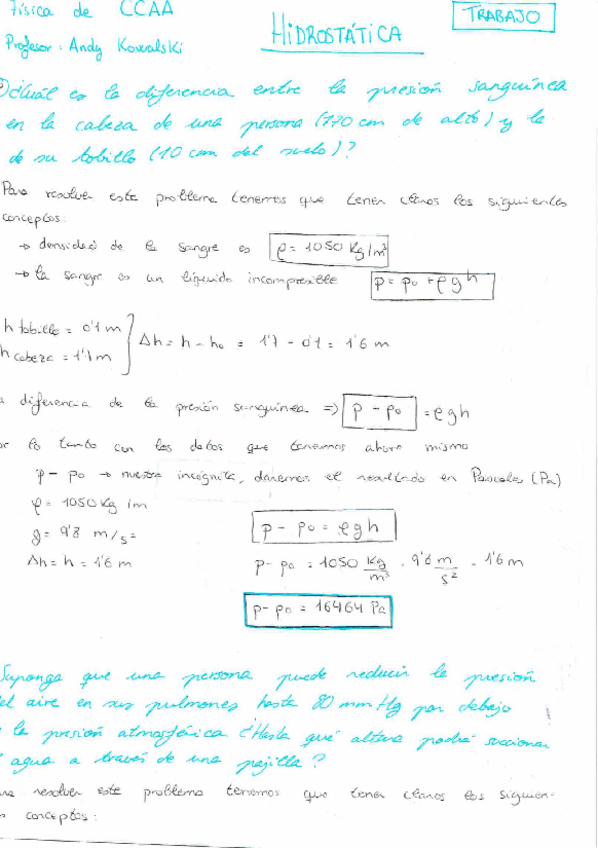 Física de CCAA
TRABAJO
Profesor: Andy Kowalski
HIDROSTÁTICA
¿Cuál es la diferencia entre la presión sanguínea
en la cabeza de una persona (170 cm de alto) y la
de su tobillo (10 cm del suelo)?
Para resolver este problema tenemos que tener claros los siguientes
conceptos:
→ densidad de la sangre es ρ = 1050 Kg/m³
→ la sangre es un líquido incompresible p = po + ρgh
h tobillo = 0'1 m
h cabeza = 1'7 m
Δh = h - ho = 1'7 - 0'1 = 1'6 m
a diferencia de la presión sanguínea ⇒ p - po = ρgh
or lo tanto con los datos que tenemos ahora mismo
p - po → nuestra incógnita, daremos el resultado en Pascales (Pa)
ρ = 1050 Kg/m
g = 9'8 m/s²
p - po = ρgh
Δh = h = 1'6 m
p - po = 1050 Kg/m³ · 9'8 m/s² · 1'6 m
p - po = 16464 Pa
Suponga que una persona puede reducir la presión
el aire en sus pulmones hasta 80 mmHg por debajo
la presión atmosférica ¿Hasta qué altura podrá succionar
agua a través de una pajilla?
ra resolver este problema tenemos que tener claros los siguien-
s conceptos: